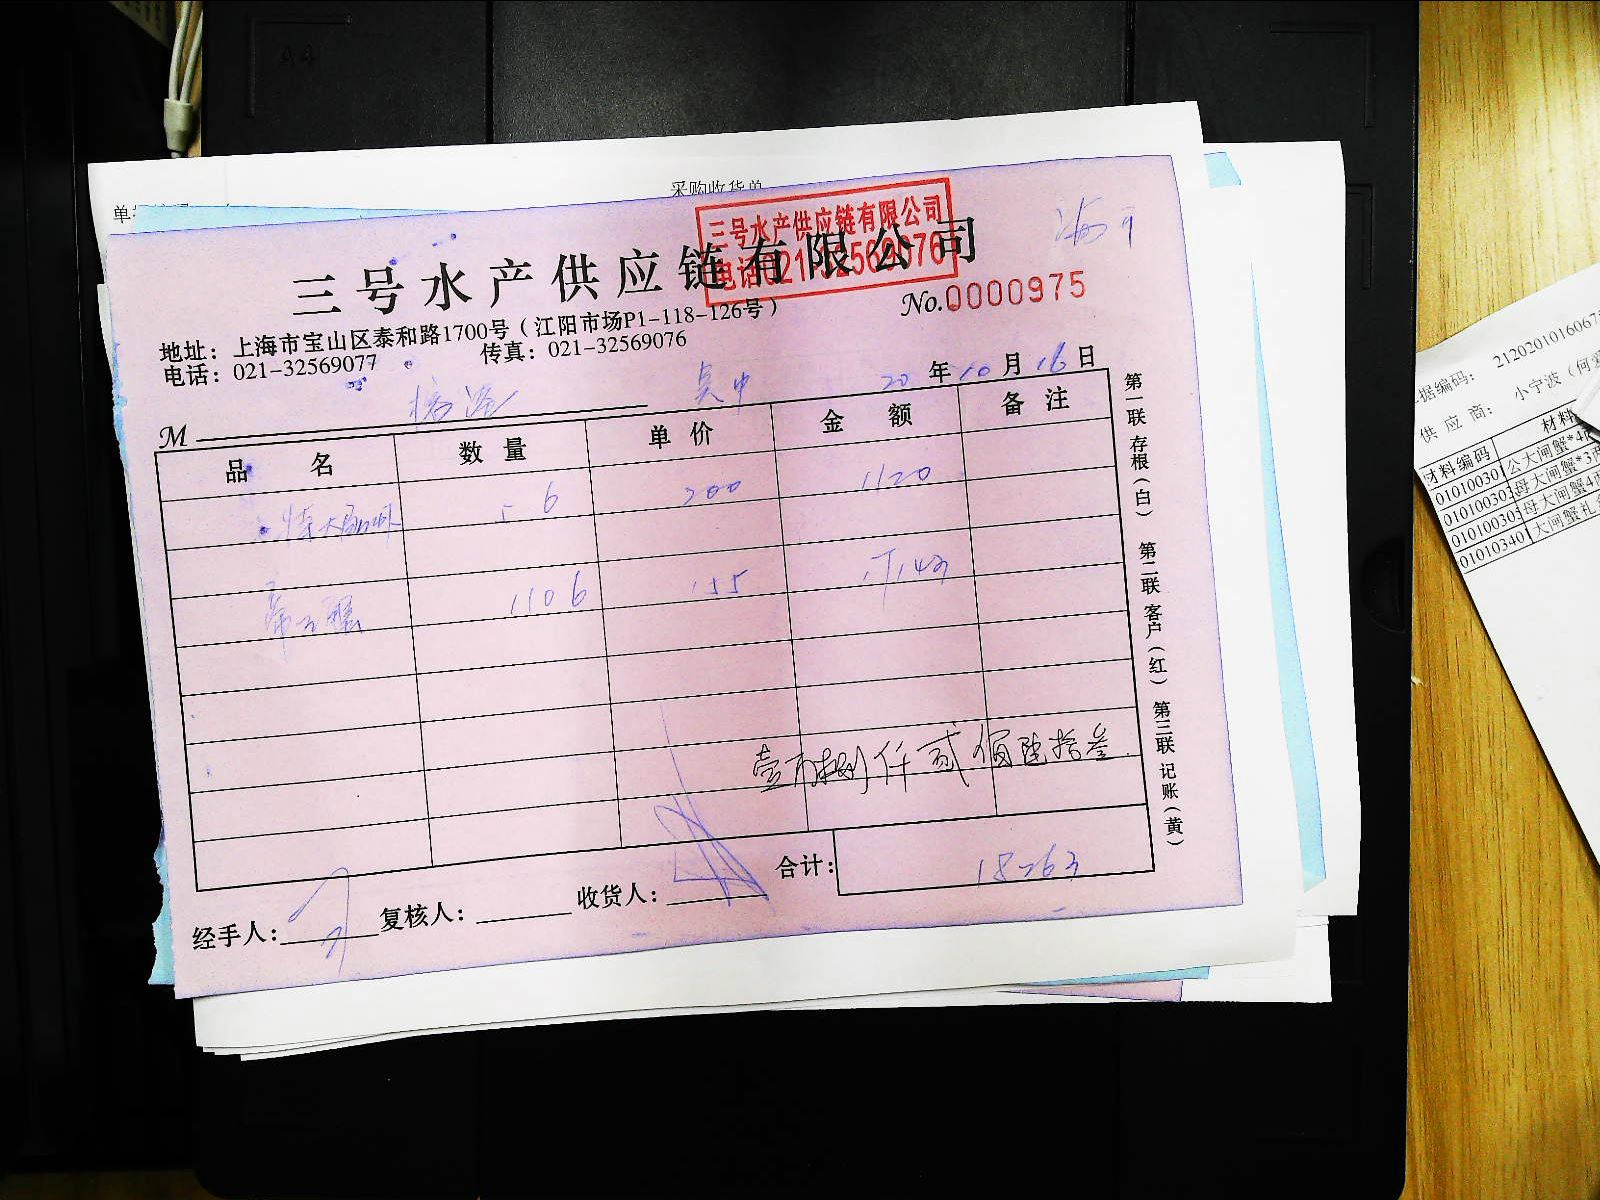 采购收货单
三号水产供应链有限公司
三号水产供应链有限公司
地址：上海市宝山区泰和路1700号（江阳市场P1-118-126号）
电话：021-32569077 传真：021-32569076
No.0000975
20年10月16日
M
品名 数量 单价 金额 备注
5.6 200 1120
110.6 155 17143
壹万捌仟贰佰陆拾叁
合计： 18263
经手人： 复核人： 收货人：
第一联 存根（白） 第二联 客户（红） 第三联 记账（黄）
供应商： 小宁波
材料编码
01010030
01010030
01010030
01010340
公大闸蟹*4
母大闸蟹*3
母大闸蟹4
大闸蟹礼